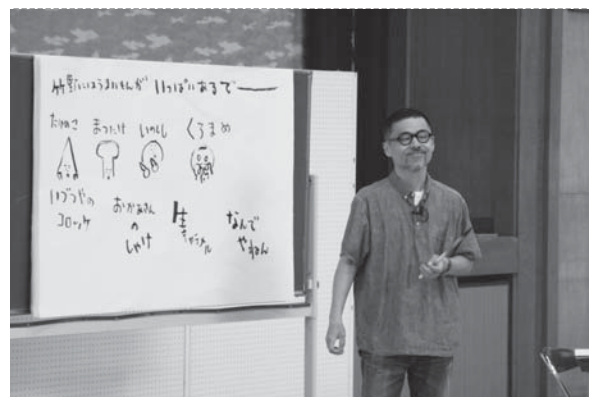 竹野にはうまいもんが いっぱいあるでー
たけのこ まつたけ いのしし くろまめ
いづつやの
コロッケ
おかあさん
の
しゃけ
生
キャラメル
なんで
やねん